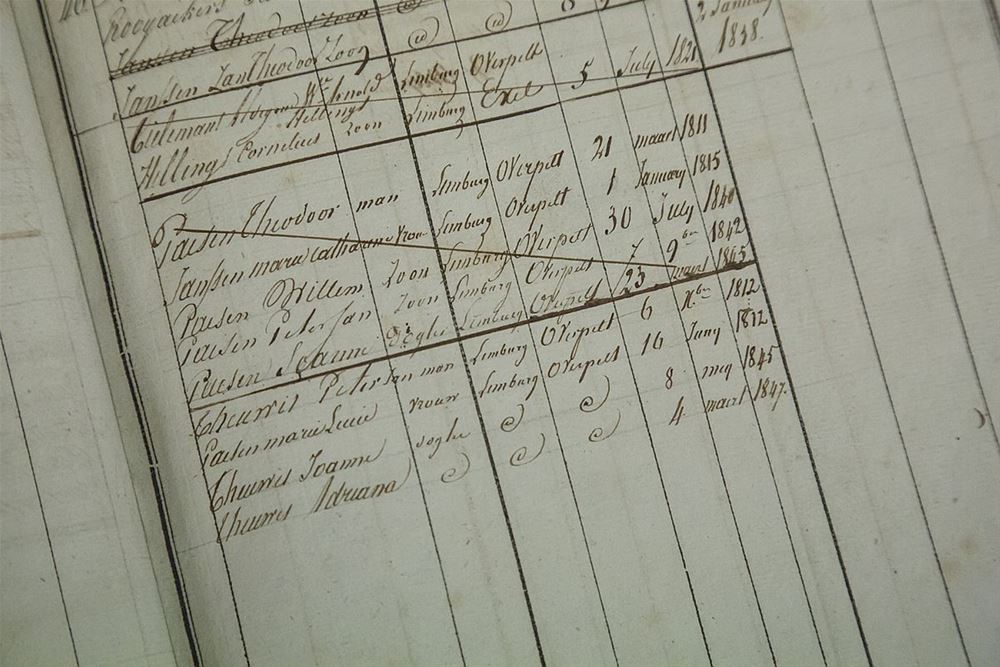 Rooyackers
Janssen Theodoor Zoon
2 January
Janssen Jan Theodoor Zoon @ @ 1818.
Tielemans Wm Arnold Limburg Overpelt
Hellings
Hellings Cornelius Zoon Limburg Exel 5 July 1821
Paesen Theodoor man Limburg Overpelt 21 maart 1811
Janssen maria Catharina vrou Limburg Overpelt 1 January 1815
Paesen Willem Zoon Limburg Overpelt 30 July 1840
Paesen Peter Jan Zoon Limburg Overpelt 7 9ber 1842
Paesen Joanna dogter Limburg Overpelt 23 maart 1845
Theuwis Peter Jan man Limburg Overpelt 6 Xber 1812
Paesen maria Lucia vrouw Limburg Overpelt 16 Juny 1812
Theuwis Joanna dogter @ @ 8 mey 1845
Theuwis Adriana @ @ @ 4 maart 1847.